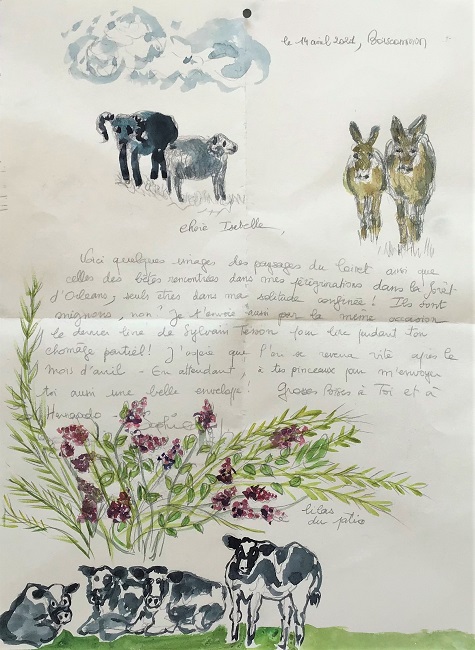 le 14 avril 2020,
Chère Isabelle,
Voici quelques images des paysages du Loiret ainsi que
celles des bêtes rencontrées dans mes pérégrinations dans la forêt
d'Orléans, seuls êtres dans ma solitude confinée! Ils sont
mignons, non? Je t'envoie aussi par la même occasion
le dernier livre de Sylvain Tesson pour lire pendant ton
chômage partiel! J'espère que l'on se reverra vite après le
mois d'avril - En attendant à tes pinceaux pour m'envoyer
toi aussi une belle enveloppe! Grosses Bises à Toi et à
Hernando
Sophie
lilas
du patio